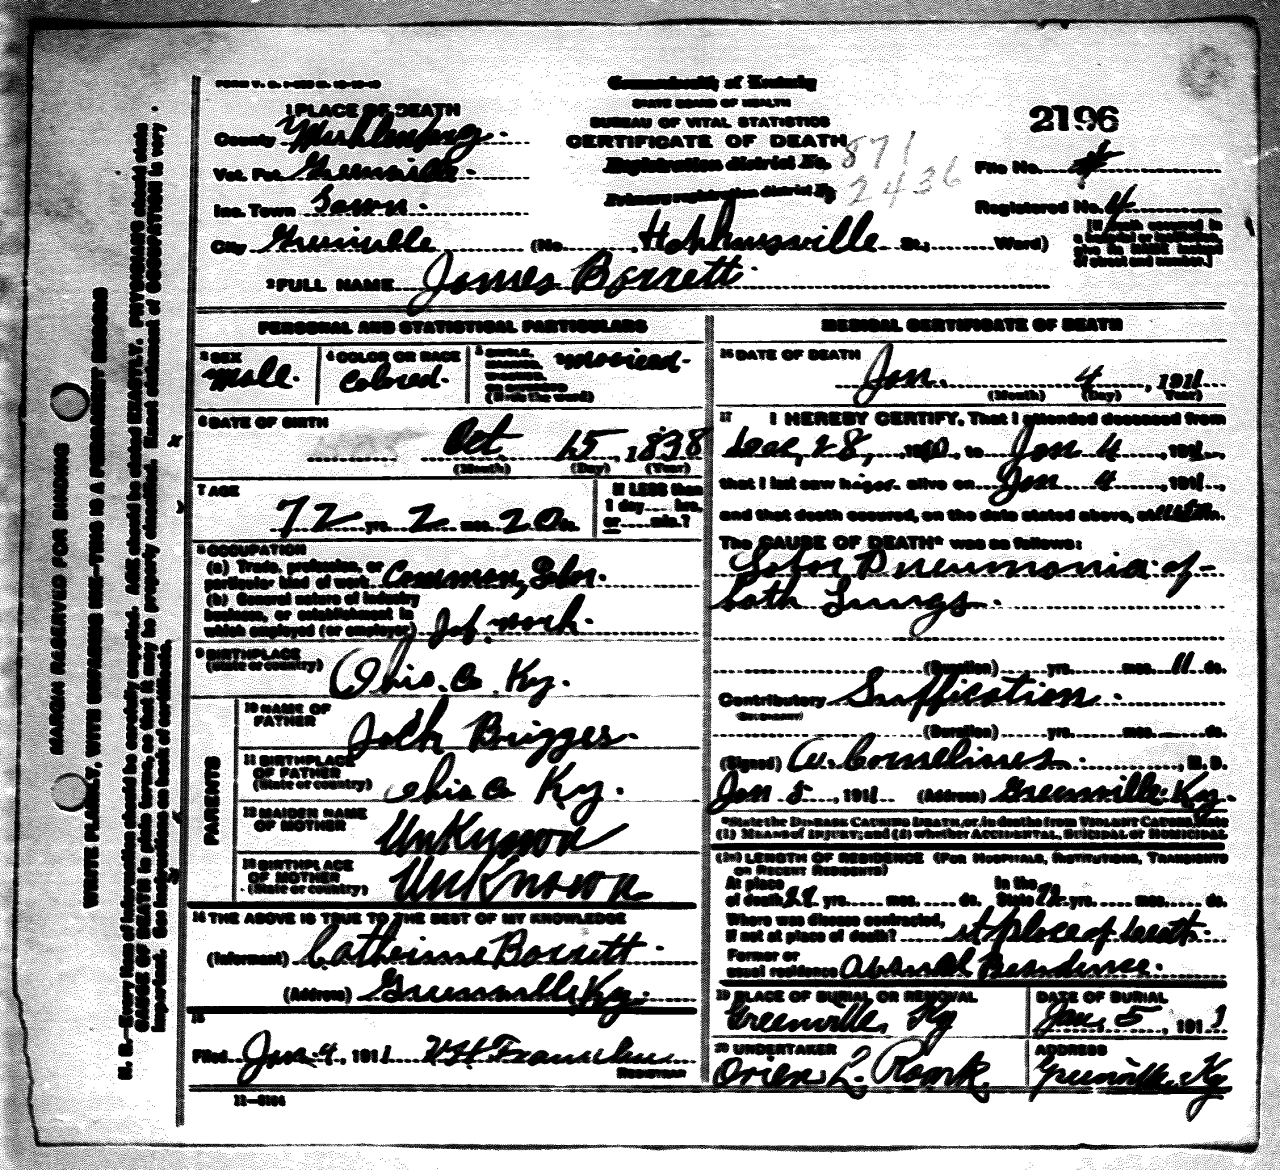 FORM V. S.
Commonwealth of Kentucky
STATE BOARD OF HEALTH
BUREAU OF VITAL STATISTICS
CERTIFICATE OF DEATH
2196
1 PLACE OF DEATH
County Muhlenberg.
Vot. Pct. Greenville.
Inc. Town
City Greenville (No. , Hopkinsville St.; Ward)
Registration district No. 871
Primary registration district No. 2436
File No. 4
Registered No. 4
[If death occurred in
a hospital or institution,
give its NAME instead
of street and number.]
2 FULL NAME James Barrett.
PERSONAL AND STATISTICAL PARTICULARS
3 SEX Male.
4 COLOR OR RACE Colored.
5 SINGLE,
MARRIED,
WIDOWED,
OR DIVORCED
(Write the word)
Married.
6 DATE OF BIRTH
Oct 15, 1838
(Month) (Day) (Year)
7 AGE
72 yrs. 2 mos. 20 ds.
If LESS than
1 day hrs.
or min.?
8 OCCUPATION
(a) Trade, profession, or
particular kind of work Common, Labor.
(b) General nature of industry
business, or establishment in
which employed (or employer) Job. work.
9 BIRTHPLACE
(State or country) Ohio. Co. Ky.
PARENTS
10 NAME OF
FATHER Jack Briggs.
11 BIRTHPLACE
OF FATHER
(State or country) Ohio Co Ky.
12 MAIDEN NAME
OF MOTHER UnKnown
13 BIRTHPLACE
OF MOTHER
(State or country) UnKnown
14 THE ABOVE IS TRUE TO THE BEST OF MY KNOWLEDGE
(Informant) Catherine Barrett.
(Address) Greenville Ky.
15
Filed Jan. 4, 1911
REGISTRAR
11-3184
MEDICAL CERTIFICATE OF DEATH
16 DATE OF DEATH
Jan. 4, 1911
(Month) (Day) Year)
17 I HEREBY CERTIFY, That I attended deceased from
Dec, 28, 1910, to Jan 4, 1911,
that I last saw h alive on Jan 4, 1911,
and that death occurred, on the date stated above, at m.
The CAUSE OF DEATH* was as follows:
Lobar Pneumonia of
both Lungs.
(Duration) yrs. mos. 11 ds.
Contributory Suffication.
(Secondary)
(Duration) yrs. mos. ds.
(Signed) , M. D.
Jan 5, 1911 (Address) Greenville Ky.
*State the DISEASE CAUSING DEATH, or, in deaths from VIOLENT CAUSES, state
(1) MEANS OF INJURY; and (2) whether ACCIDENTAL, SUICIDAL or HOMICIDAL
LENGTH OF RESIDENCE (FOR HOSPITALS, INSTITUTIONS, TRANSIENTS
OR RECENT RESIDENTS)
At place
of death yrs. mos. ds. In the
State 72 yrs. mos. ds.
Where was disease contracted,
if not at place of death? At place of death.
Former or
usual residence Residence.
19 PLACE OF BURIAL OR REMOVAL
Greenville, Ky
DATE OF BURIAL
Jan. 5, 1911
20 UNDERTAKER
Orien L. Roark.
ADDRESS
Greenville, Ky
MARGIN RESERVED FOR BINDING
WRITE PLAINLY, WITH UNFADING INK—THIS IS A PERMANENT RECORD
N. B.—Every item of information should be carefully supplied. AGE should be stated EXACTLY. PHYSICIANS should state
CAUSE OF DEATH in plain terms, so that it may be properly classified. Exact statement of OCCUPATION is very
important. See instructions on back of certificate.